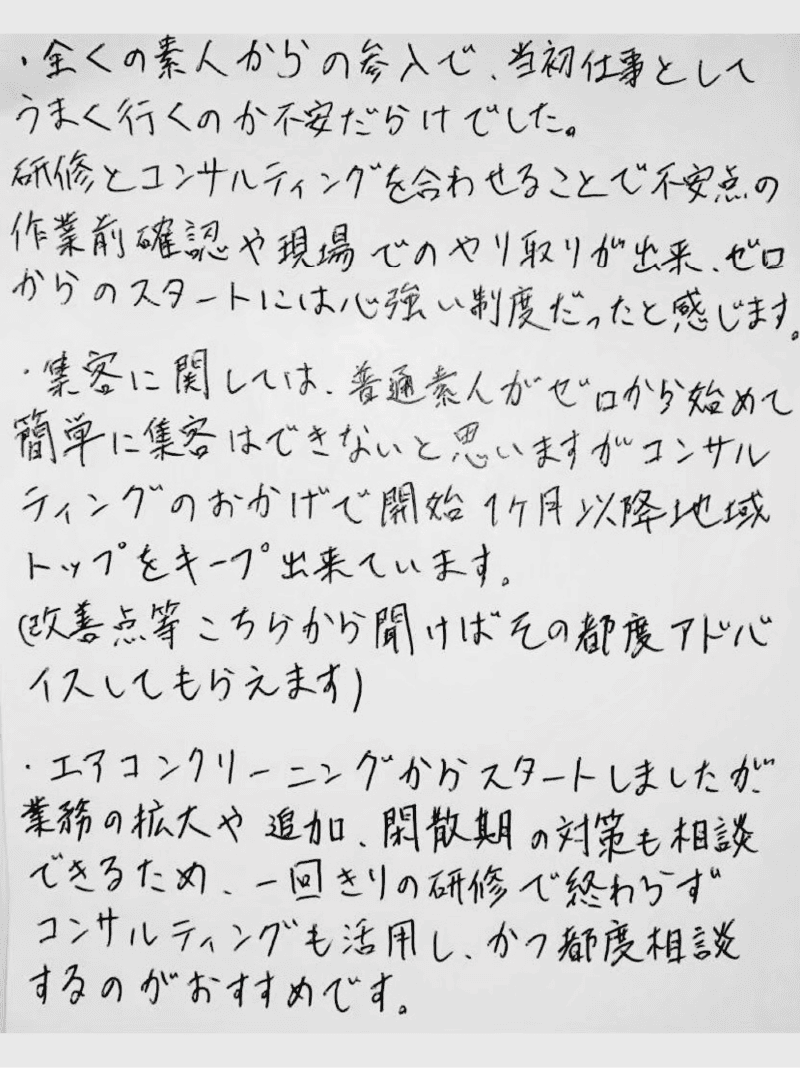 ・全くの素人からの参入で、当初仕事として
うまく行くのか不安だらけでした。
研修とコンサルティングを合わせることで不安点の
作業前確認や現場でのやり取りが出来、ゼロ
からのスタートには心強い制度だったと感じます。
・集客に関しては、普通素人がゼロから始めて
簡単に集客はできないと思いますがコンサル
ティングのおかげで開始1ヶ月以降地域
トップをキープ出来ています。
(改善点等こちらから聞けばその都度アドバ
イスしてもらえます)
・エアコンクリーニングからスタートしましたが、
業務の拡大や追加、閑散期の対策も相談
できるため、一回きりの研修で終わらず
コンサルティングも活用し、かつ都度相談
するのがおすすめです。